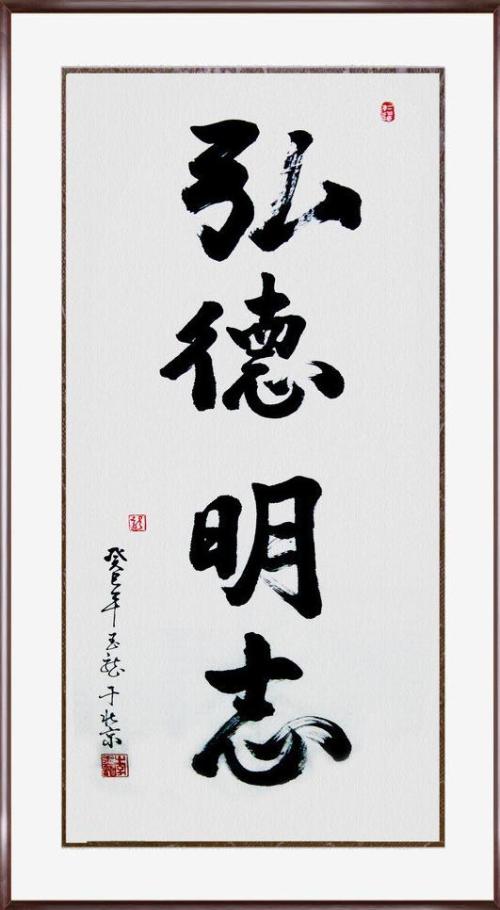 弘德明志
癸巳年玉龙于北京